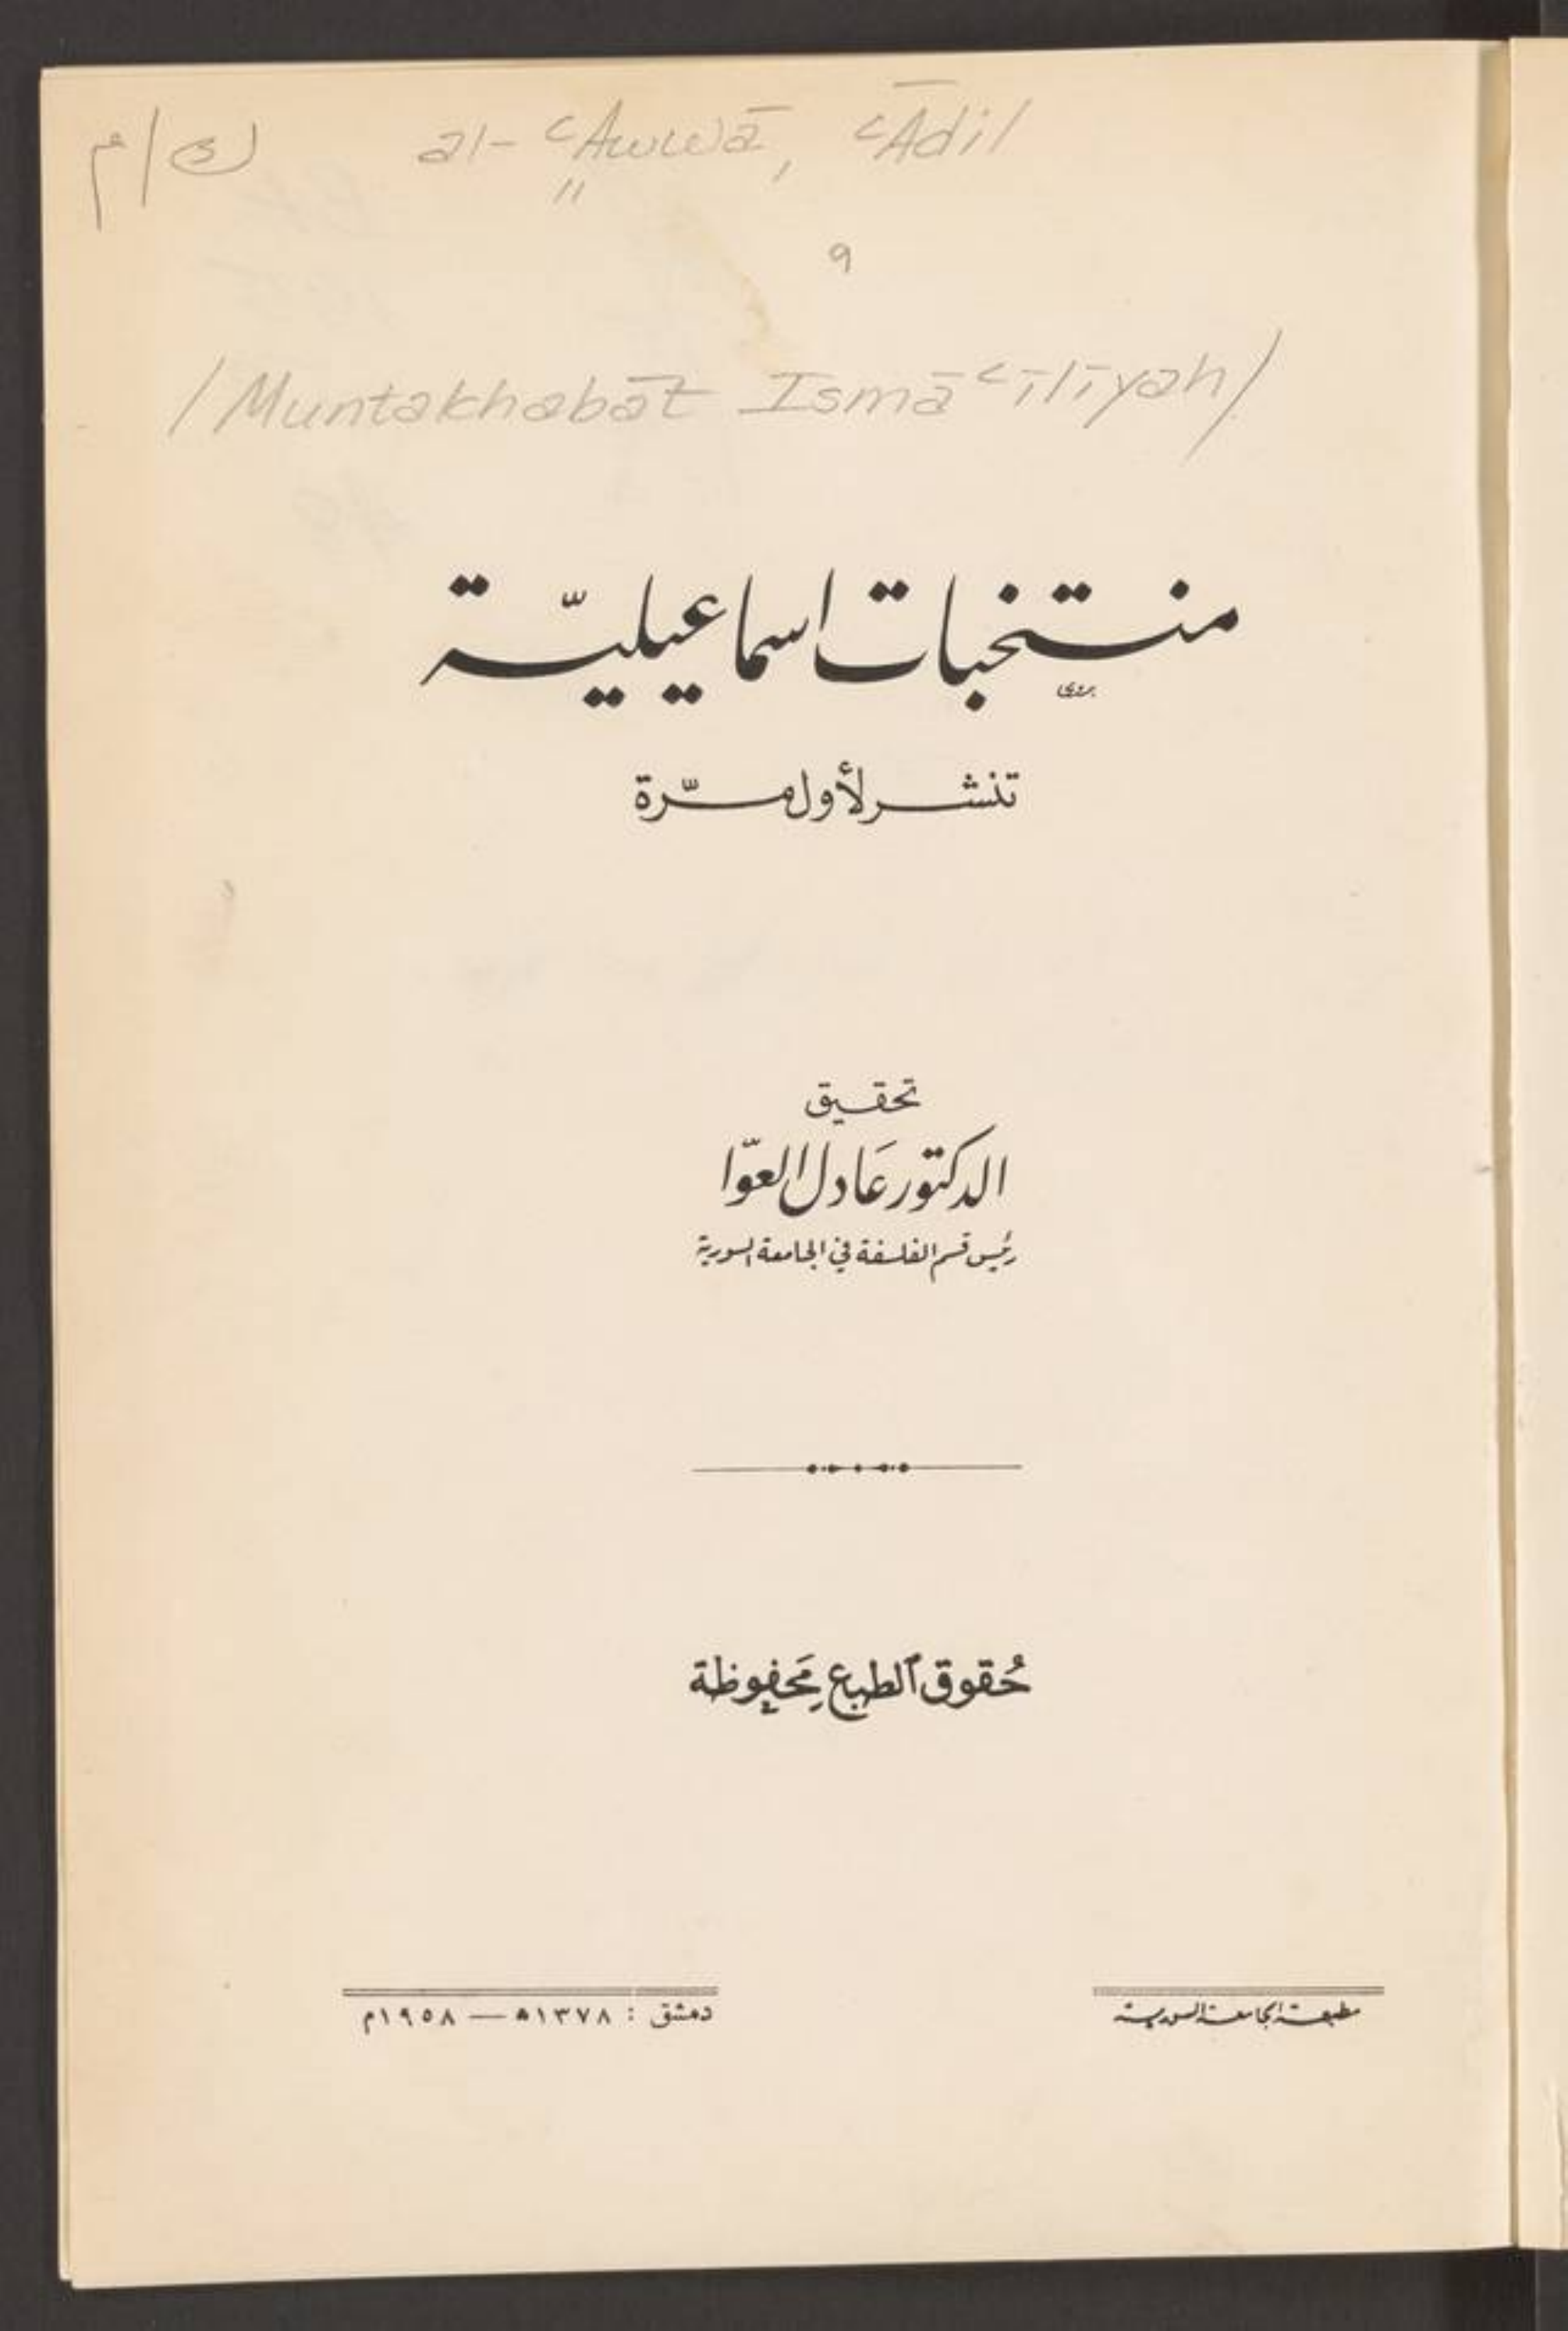 al- ʿAwwā, ʿĀdil
٩
/Muntakhabāt Ismāʿīlīyah/
منتخبات اسماعيليّة
تنشر لأول مرّة
تحقيق
الدكتور عَادل العوّا
رئيس قسم الفلسفة في الجامعة السورية
حُقوق الطبع مَحفوظة
مطبعة الجامعة السورية
دمشق : ١٣٧٨ﻫ — ١٩٥٨م